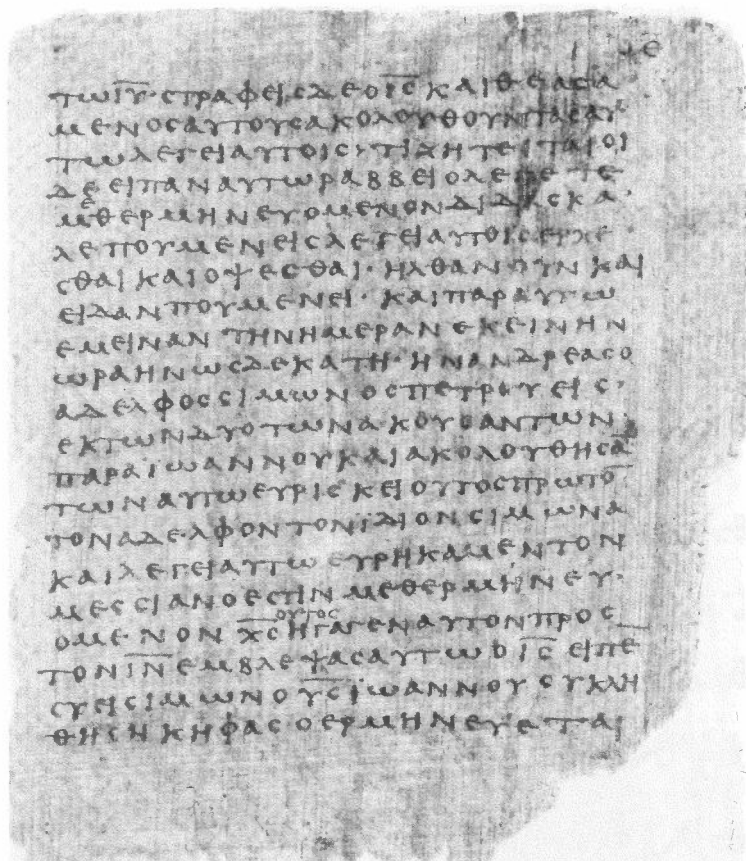 Ε
ΤΩΙ̅Υ̅·ϹΤΡΑΦΕΙϹΔΕΟΙ̅Ϲ̅ΚΑΙΘΕΑϹΑ
ΜΕΝΟϹΑΥΤΟΥϹΑΚΟΛΟΥΘΟΥΝΤΑϹΑΥ
ΤΩΛΕΓΕΙΑΥΤΟΙϹ·ΤΙΖΗΤΕΙΤΑΙΟΙ
ΔΕΕΙΠΑΝΑΥΤΩΡΑΒΒΕΙΟΛΕΓΕΤΕ
ΜΕΘΕΡΜΗΝΕΥΟΜΕΝΟΝΔΙΔΑϹΚΑ·
ΛΕΠΟΥΜΕΝΕΙϹΛΕΓΕΙΑΥΤΟΙϹΕΡΧΕ
ϹΘΑΙΚΑΙΟΨΕϹΘΑΙ·ΗΛΘΑΝΟΥΝΚΑΙ
ΕΙΔΑΝΠΟΥΜΕΝΕΙ·ΚΑΙΠΑΡΑΥΤΩ
ΕΜΕΙΝΑΝΤΗΝΗΜΕΡΑΝΕΚΕΙΝΗΝ
ΩΡΑΗΝΩϹΔΕΚΑΤΗ·ΗΝΑΝΔΡΕΑϹΟ
ΑΔΕΛΦΟϹϹΙΜΩΝΟϹΠΕΤΡΟΥΕΙϹ·
ΕΚΤΩΝΔΥΟΤΩΝΑΚΟΥϹΑΝΤΩΝ·
ΠΑΡΑΙΩΑΝΝΟΥΚΑΙΑΚΟΛΟΥΘΗϹΑ̅
ΤΩΝΑΥΤΩΕΥΡΙϹΚΕΙΟΥΤΟϹΠΡΩΤΟ̅
ΤΟΝΑΔΕΛΦΟΝΤΟΝΙΔΙΟΝϹΙΜΩΝΑ
ΚΑΙΛΕΓΕΙΑΥΤΩΕΥΡΗΚΑΜΕΝΤΟΝ
ΜΕϹϹΙΑΝΟΕϹΤΙΝΜΕΘΕΡΜΗΝΕΥ·
ΟΥΤΟϹ
ΟΜΕΝΟΝΧ̅Ϲ̅ΗΓΑΓΕΝΑΥΤΟΝΠΡΟϹ
ΤΟΝΙ̅Ν̅ΕΜΒΛΕΨΑϹΑΥΤΩΟΙ̅Ϲ̅ΕΙΠΕ
ϹΥΕΙϹΙΜΩΝΟΥ̅Ϲ̅ΙΩΑΝΝΟΥϹΥΚΛΗ
ΘΗϹΗΚΗΦΑϹΟΕΡΜΗΝΕΥΕΤΑΙ